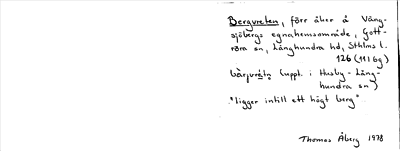 Bergvreten, förr åker å Väng-
sjöbergs egnahemsområde, Gott-
röra sn, Långhundra hd, Sthlms l.
126 (111 6g)
(uppt. i Husby-Lång-
hundra sn)
"ligger intill ett högt berg".
Thomas Åberg 1978